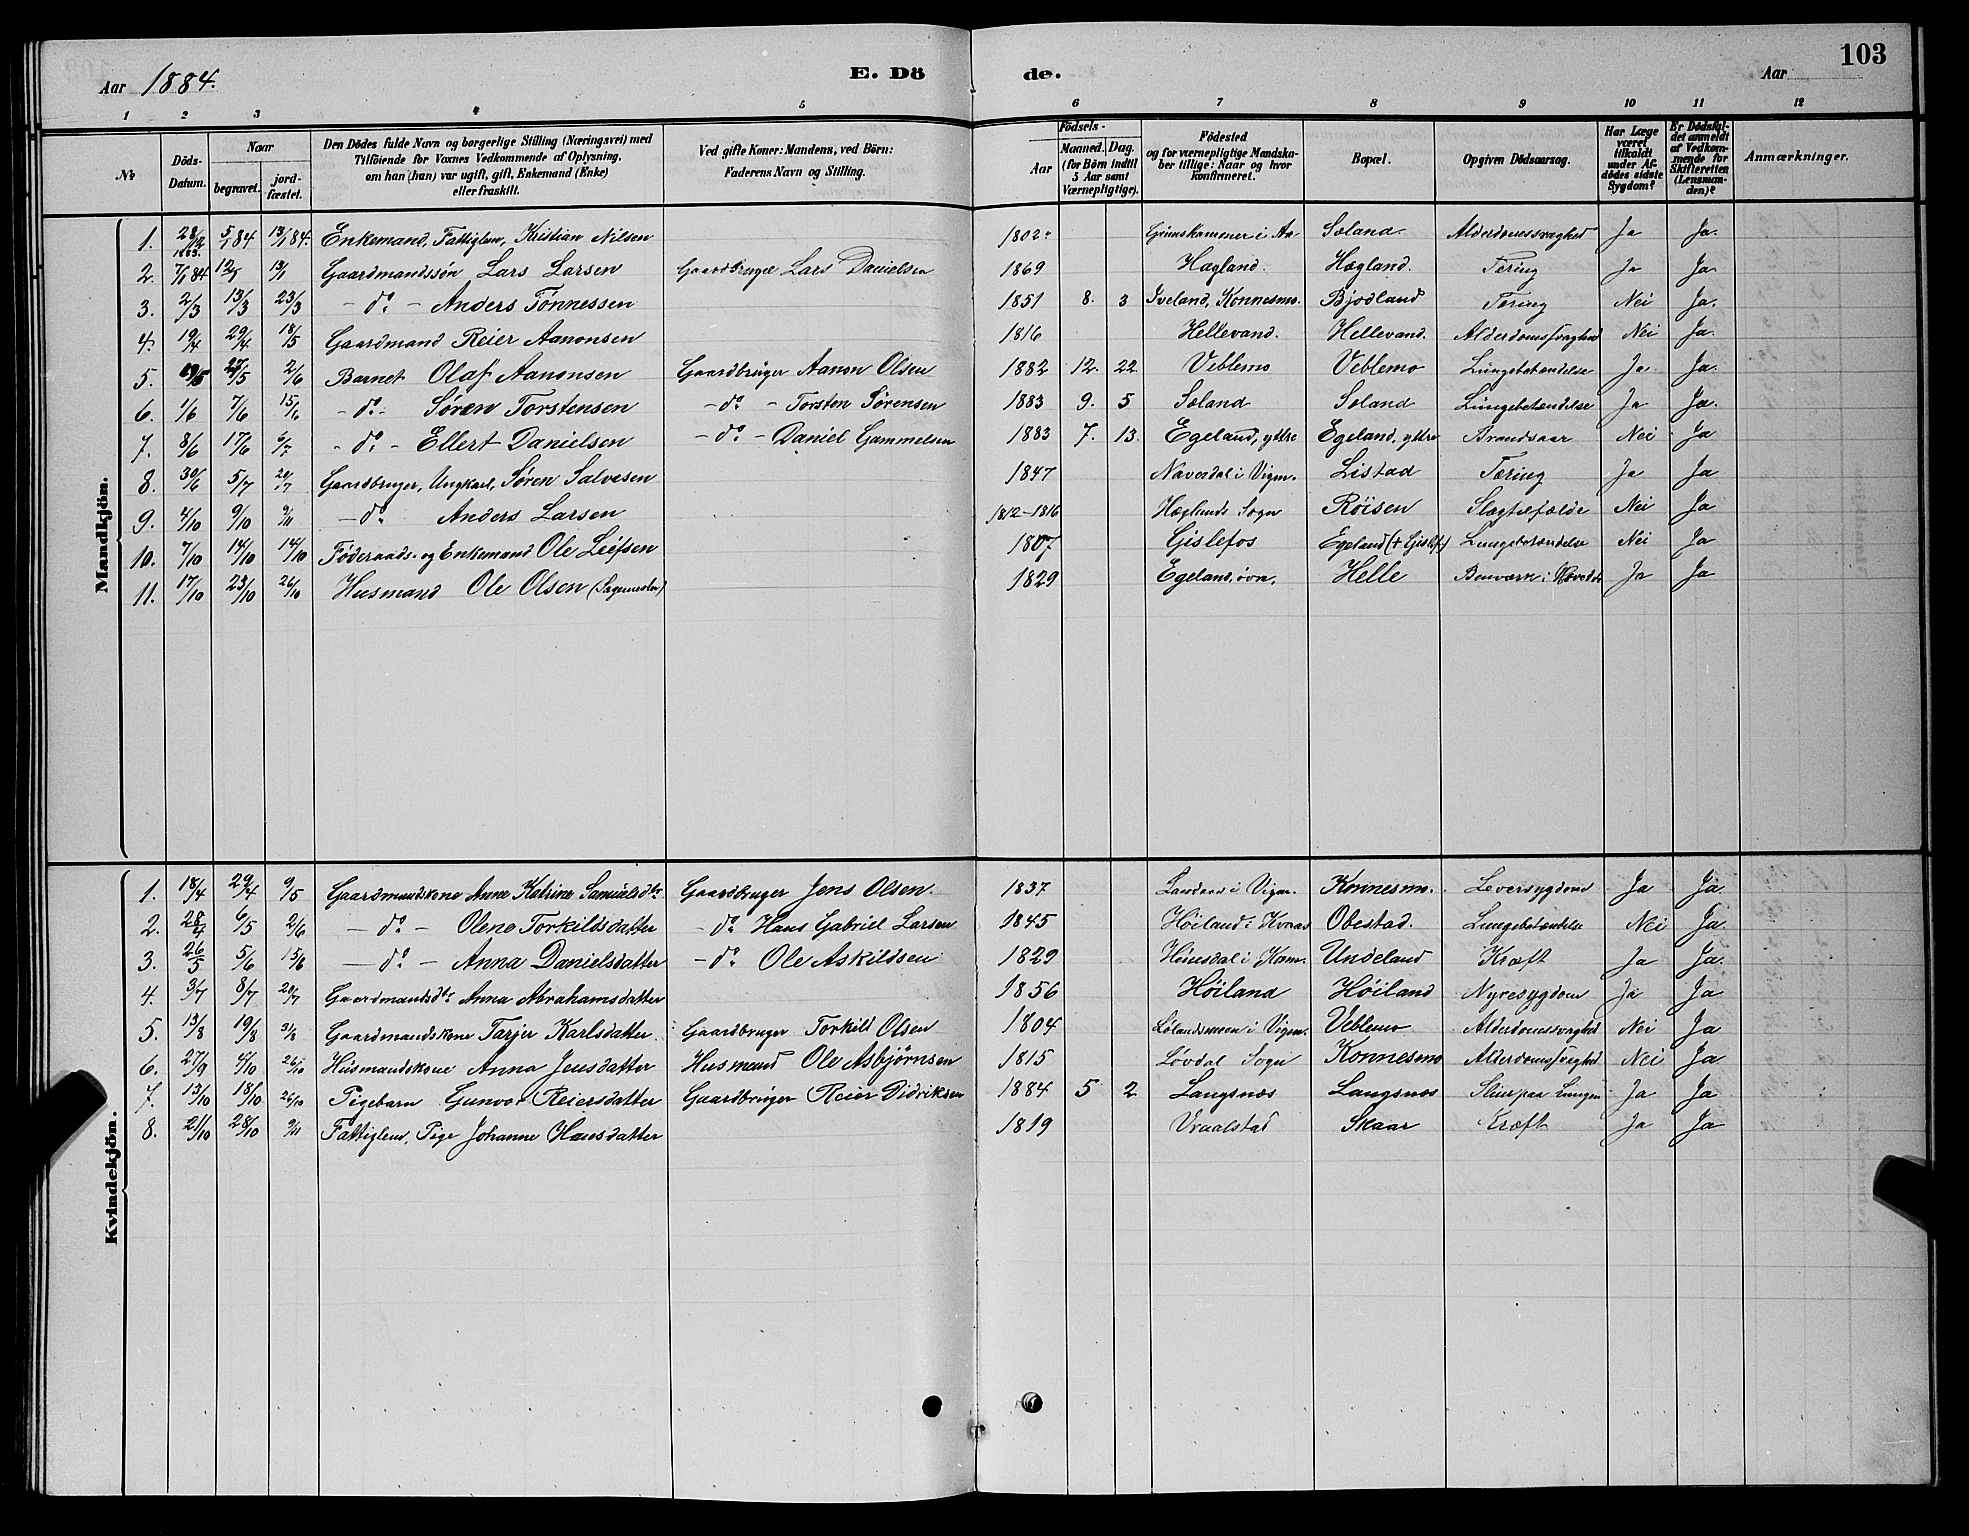 103
Aar 1884. E. Dö de. Aar
1 2 3 4 5 6 7 8 9 10 11 12
No
Döds-Datum.
Naar
begravet.
jord-fæstet.
Den Dödes fulde Navn og borgerlige Stilling (Næringsvei) med
Tilföiende for Voxnes Vedkommende af Oplysning,
om han (hun) var ugift, gift, Enkemand (Enke)
eller fraskilt.
Ved gifte Koner: Mandens, ved Börn:
Faderens Navn og Stilling.
Födsels-
Aar
Maaned. Dag.
(for Börn indtil
5 Aar samt
Værnepligtige).
Födested
og for værnepligtige Mandska-
ber tillige: Naar og hvor
konfirmeret.
Bopæl.
Opgiven Dödsaarsag.
Har Læge
været
tilkaldt
under Af-
dödes sidste
Sygdom?
Er Dödsfal-
det anmeldt
af Vedkom-
mende for
Skifteretten
(Lensman-
den)?
Anmærkninger.
Mandkjön.
1. 28/12 1883. 5/1 84 13/1 84. Enkemand, Fattiglem, Kristian Nilsen 1802. Grimskammer i Aa Soland. Alderdomssvaghed Ja Ja.
2. 7/1 84 12/1 13/1 Gaardmandssön Lars Larsen Gaardbruger Lars Danielsen 1869 Hægland. Hægland. Tering Ja Ja.
3. 2/3 13/3 23/3 - do - Anders Tönnessen 1851 8. 3 Iveland, Konnesmo. Bjodland Tering Nei Ja.
4. 19/4 29/4 18/5 Gaardmand Reier Aanonsen 1816 Hellevand. Hellevand. Alderdomssvaghed Nei Ja.
5. 19/5 27/5 2/6 Barnet Olaf Aanonsen Gaardbruger Aanon Olsen 1882 12. 22 Veblemo Veblemo Lungebetændelse Ja Ja.
6. 1/6 7/6 15/6 - do - Søren Torstensen - do - Torsten Sørensen 1883 9. 5 Soland Soland Lungebetændelse Ja Ja.
7. 8/6 17/6 6/7 - do - Ellert Danielsen - do - Daniel Gammelsen 1883 7. 13. Egeland, ydre Egeland, ydre Brandsaar Nei Ja
8. 30/6 5/7 20/7 Gaardbruger, Ungkarl, Søren Salvesen 1847 Naverdal i Vigm. Listad Tering Ja Ja
9. 4/10 9/10 9/11 - do Anders Larsen 1812-1816 Hæglands Sogn Röisen Slagtilfælde Nei Ja
10. 7/10 14/10 14/10 Föderaads- og Enkemand Ole Leifsen 1807 Gislefos Egeland (+ Gislef) Lungebetændelse Nei Ja
11. 17/10 23/10 26/10 Husmand Ole Olsen 1829 Egeland, övr. Helle Benværk i Ja Ja
Kvindekjön.
1. 18/4 29/4 9/5 Gaardmandskone Anne Katrine Samuelsdtr. Gaardbruger Jens Olsen 1837 i Vigm. Konnesmo. Leversygdom Ja Ja.
2. 28/4 6/5 2/6 - do - Olene Torkildsdatter - do Hans Gabriel Larsen 1845 Höiland i Kvnas Obestad. Lungebetændelse Nei Ja.
3. 26/5 5/6 15/6 - do - Anna Danielsdatter - do Ole Askildsen 1829 i Undeland Kræft Ja Ja.
4. 3/7 8/7 20/7 Gaardmandsdtr. Anna Abrahamsdatter 1856 Höiland Höiland Nyresygdom Ja Ja
5. 13/8 19/8 31/8 Gaardmandskone Tarjer Karlsdatter Gaardbruger Torkild Olsen 1804 Lölandsmoen i Vigm. Veblemo Alderdomssvaghed Nei Ja
6. 27/9 4/10 26/10 Husmandskone Anna Jensdatter Husmand Ole Asbjörnsen 1815 Lövdal Sogn Konnesmo Alderdomssvaghed Nei Ja
7. 13/10 18/10 26/10 Pigebarn Gunvor Reiersdatter Gaardbruger Reier Didriksen 1884 5 2 Langsnæs Langsnæs Sliim paa Lungen Ja Ja
8. 21/10 28/10 9/11 Fattiglem, Pige Johanne Olausdatter 1819 Vraalstad Skaar Kræft Ja Ja